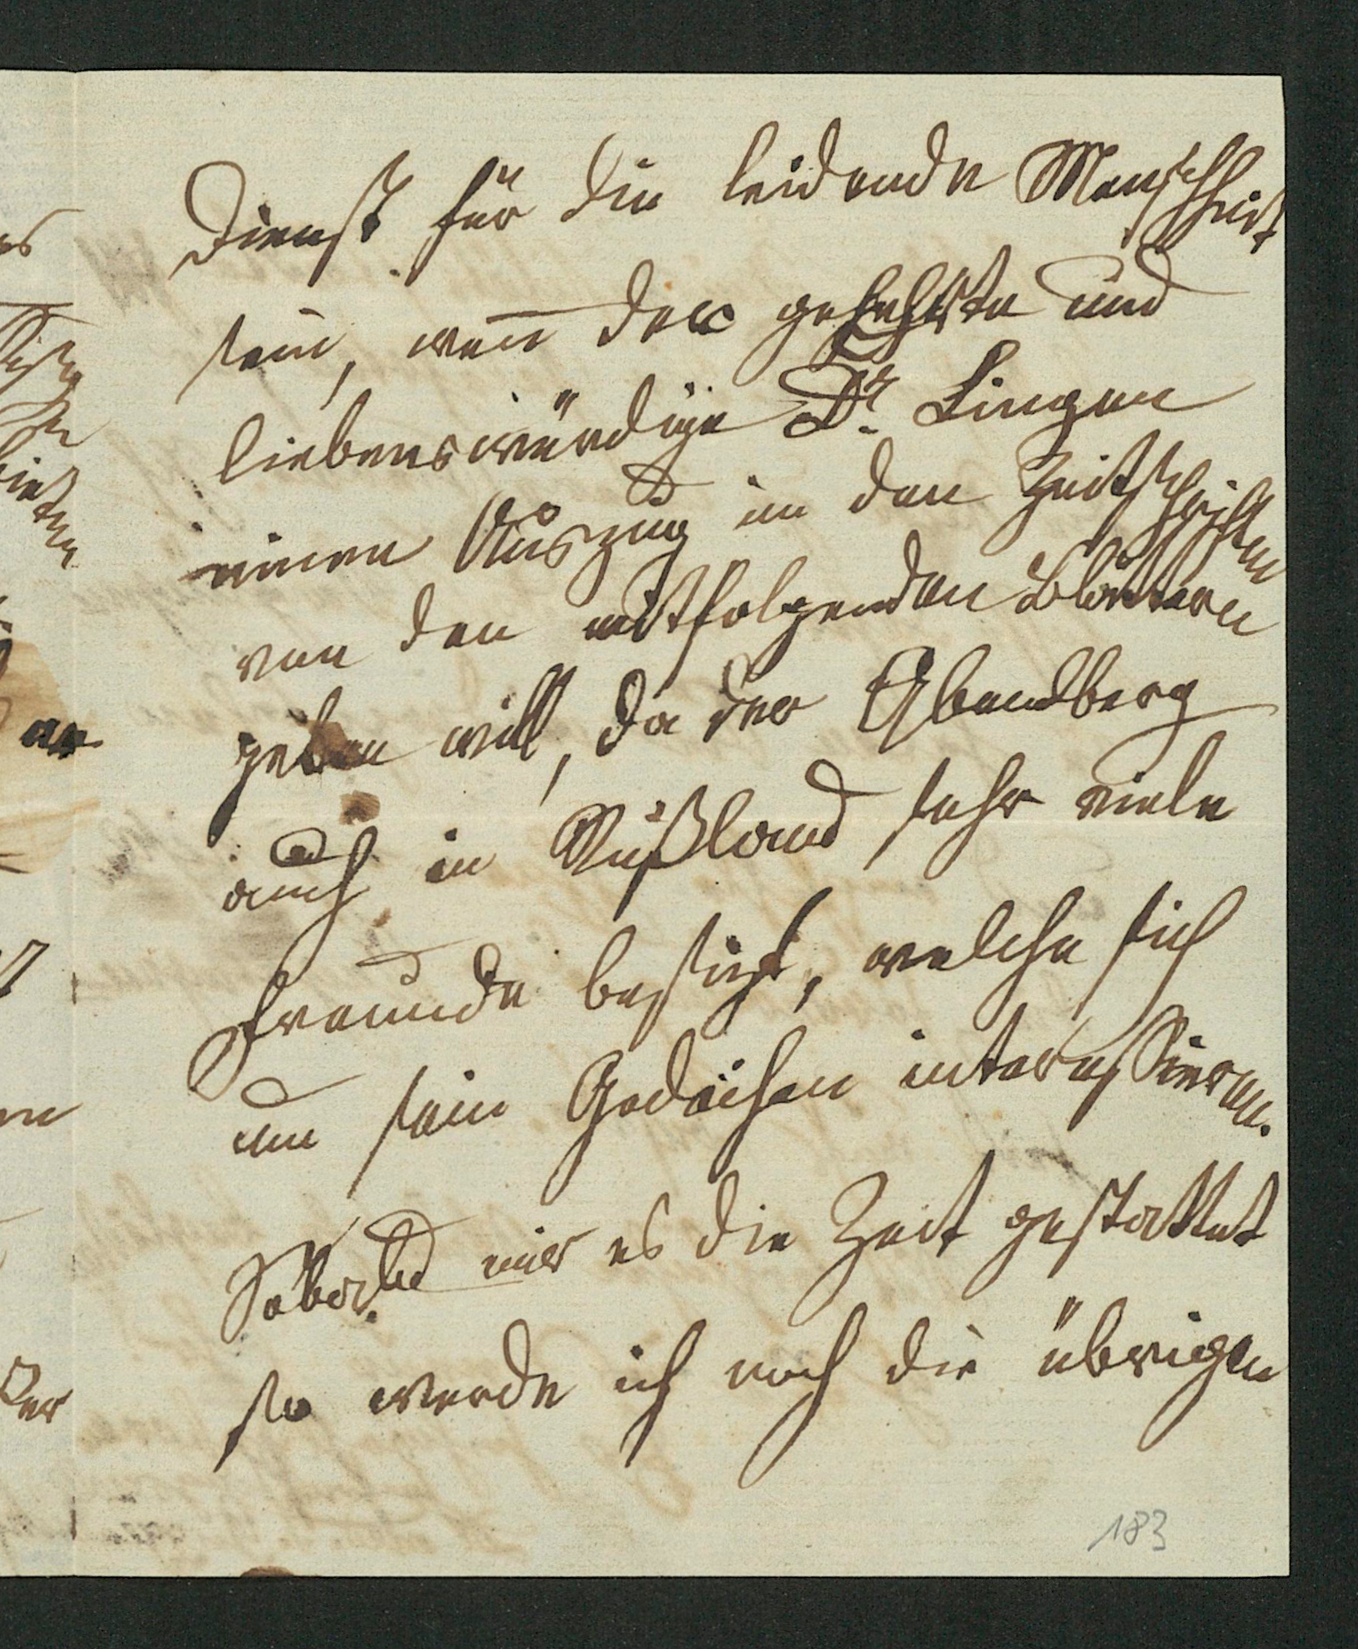 Dienst für die leidende Menschheit
sein, wen̄ der geehrte und
liebenswürdige Dr. Lingen
einen Auszug in den Zeitschriften
von den mitfolgenden Blättern
geben will, da der Abendberg
auch in Rußland sehr viele
Freunde besitzt, welche sich
um sein Gedeihen interessieren.
Sobald mir es die Zeit gestattet
so werde ich noch die übrigen
183